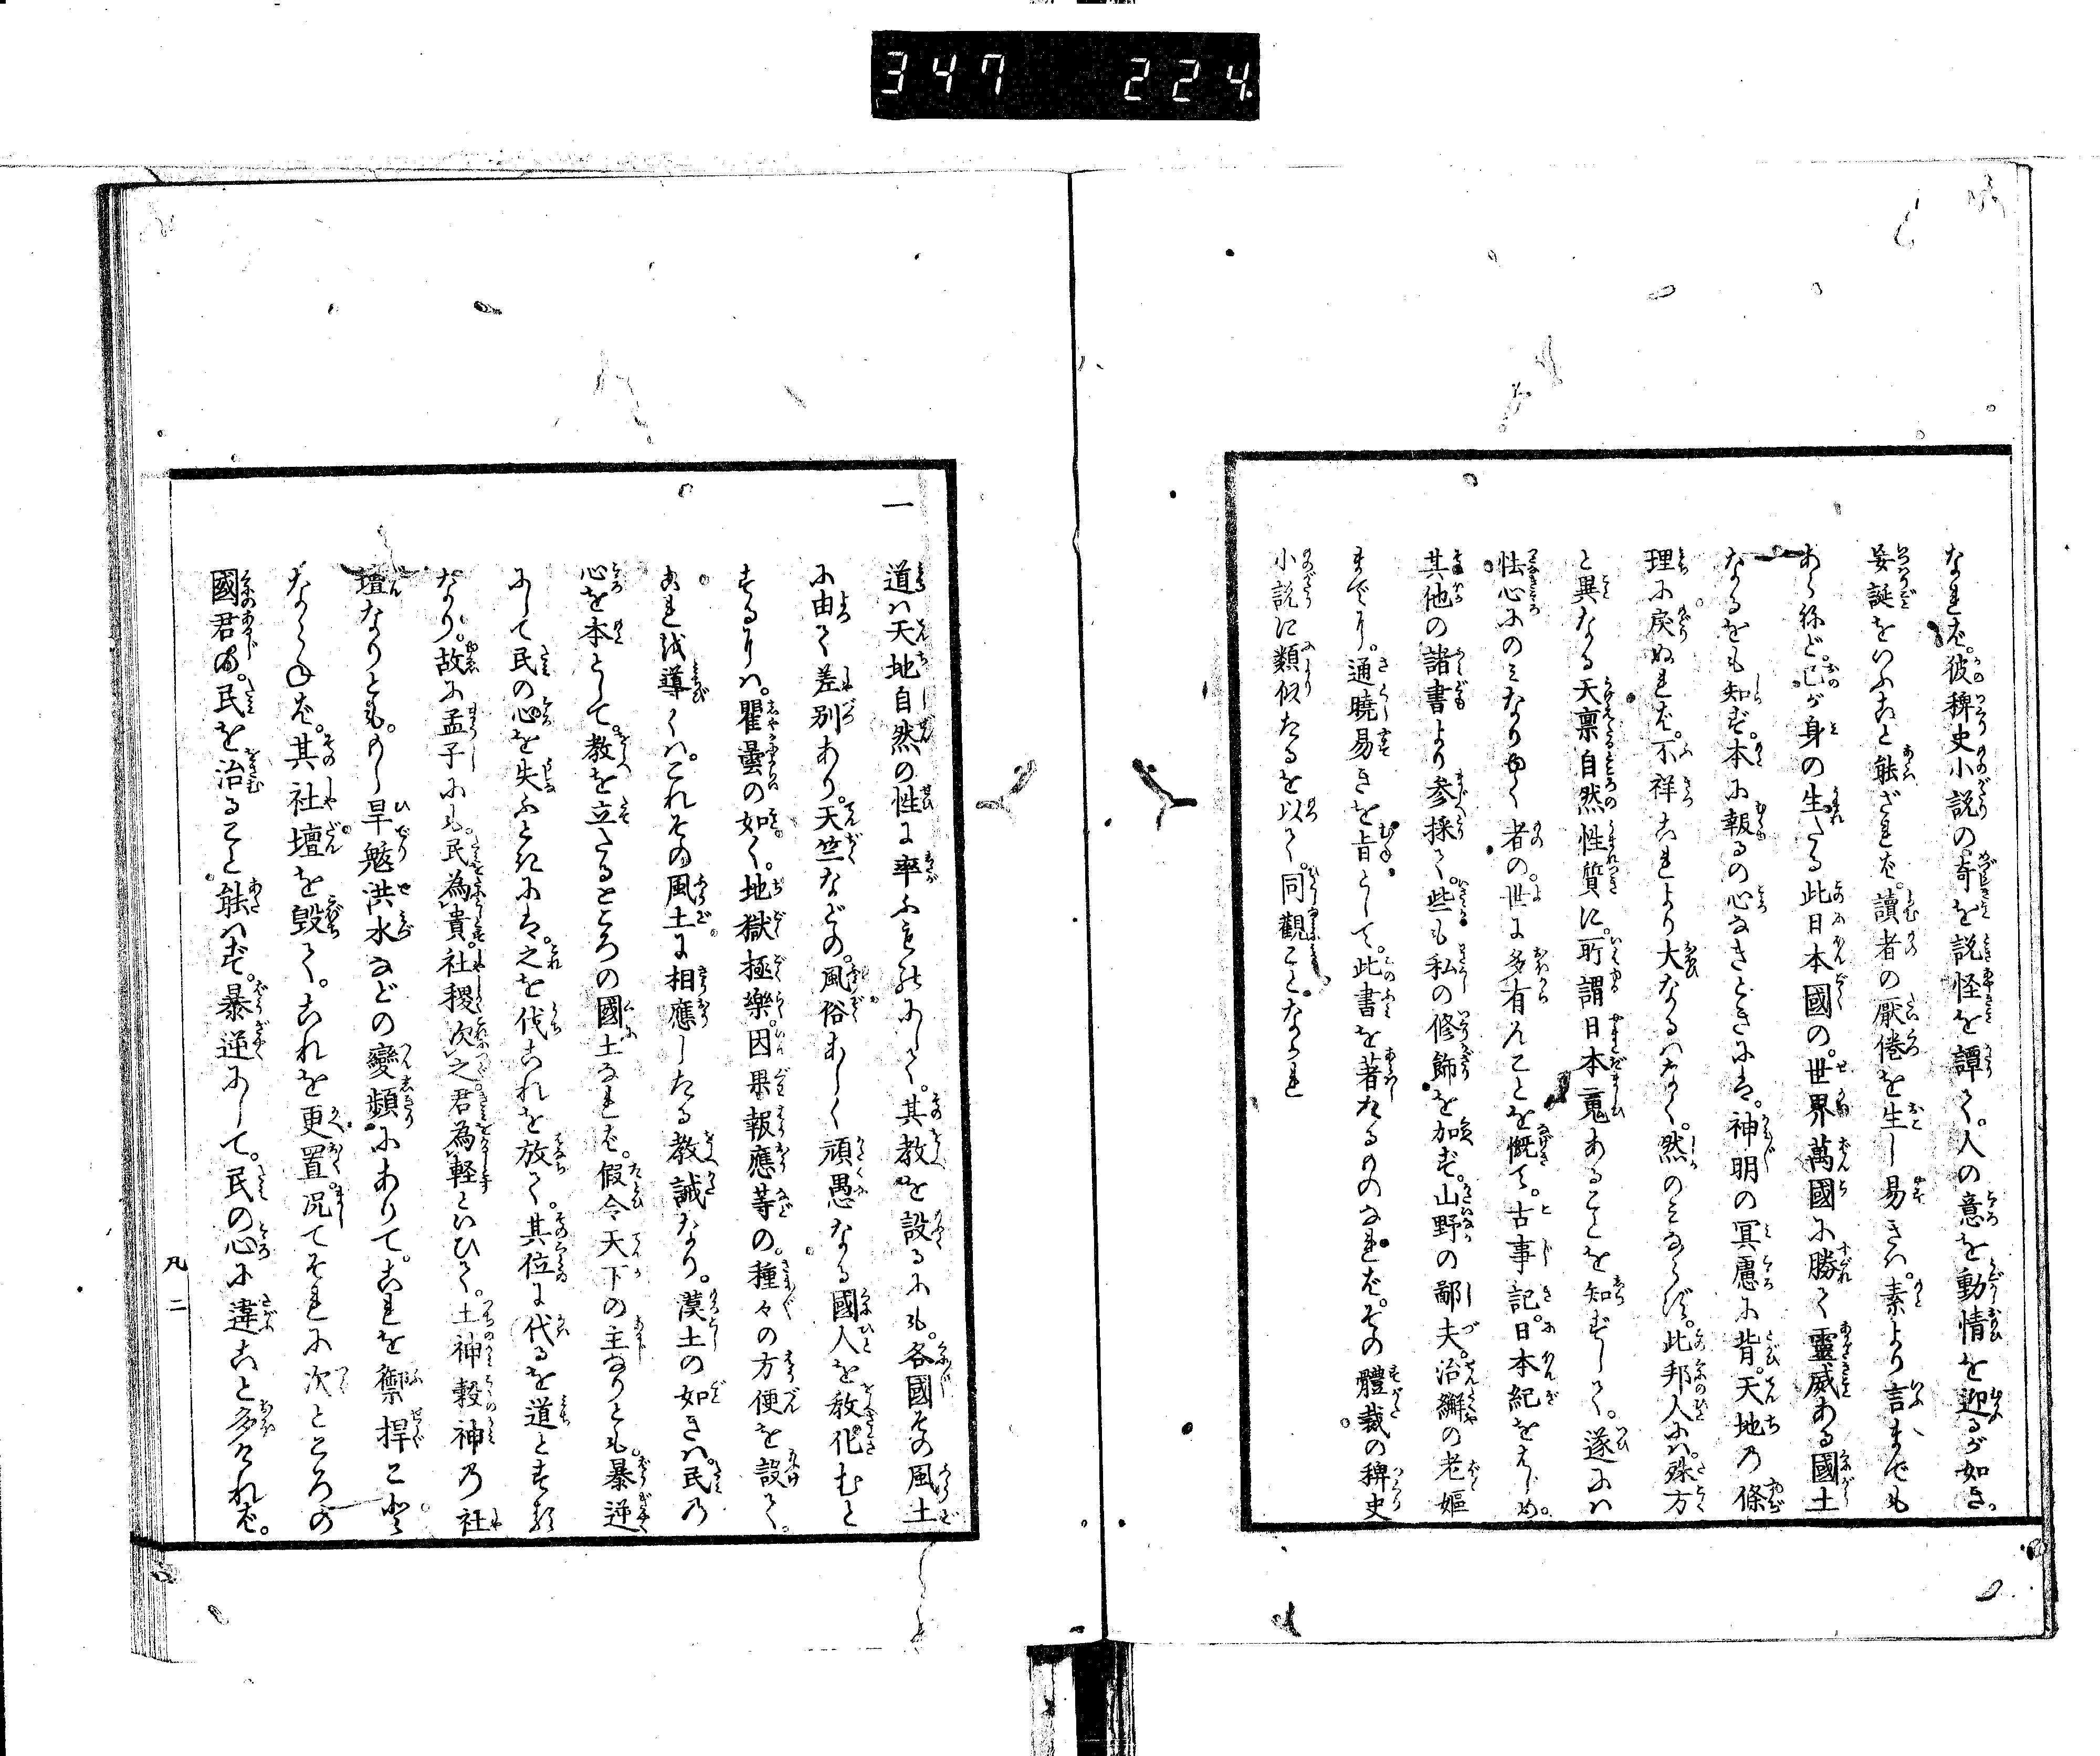 347 224
なれば。彼稗史小説の奇を説怪を譚て。人の意を動情を迎るが如き。
妄誕をいふこと能ざれば。讀者の厭倦を生し易きハ。素より言までも
あらねど。己が身の生たる此日本國の。世界萬國に勝て靈威ある國土
なるをも知ず。本に報るの心なきときには。神明の冥慮に背。天地の條
理に戻ぬれば。不祥これより大なるハなく。然のミならず。此邦人にハ。殊方
と異なる天禀自然性質に。所謂日本䰟あることを知ずして。遂にハ
怯心にのミなりゆく者の。世に多有んことを慨て。古事記。日本紀をはじめ。
其他の諸書より参採て。些も私の修飾を加ず。山野の鄙夫。治繲の老嫗
までに。通曉易きを旨として。此書を著たるものなれば。その體裁の稗史
小説に類似たるを以て。同觀ことなかれ
一
道ハ天地自然の性に率ふものにして。其教を設るにも。各國その風土
に由て差別あり。天竺などの。風俗あしく頑愚なる國人を教化むと
するにハ。瞿曇の如く。地獄極樂。因果報應等の。種々の方便を設て。
あれ導くハ。これその風土に相應したる教誡なり。漢土の如きハ。民の
心を本として。教を立たるところの國土なれば。假令天下の主なりとも。暴逆
にして民の心を失ふときには。之を伐これを放て。其位に代るを道とする
なり。故に孟子にも。民為貴。社稷次之。君為輕といひて。土神穀神の社
壇なりとも。もし旱魃洪水などの變頻にありて。これを禦捍こと
ならねば。其社壇を毀て。これを更置。况てそれに次ところの
國君の。民を治ること能ハず。暴逆にして。民の心に違こと多ければ。
凡 二